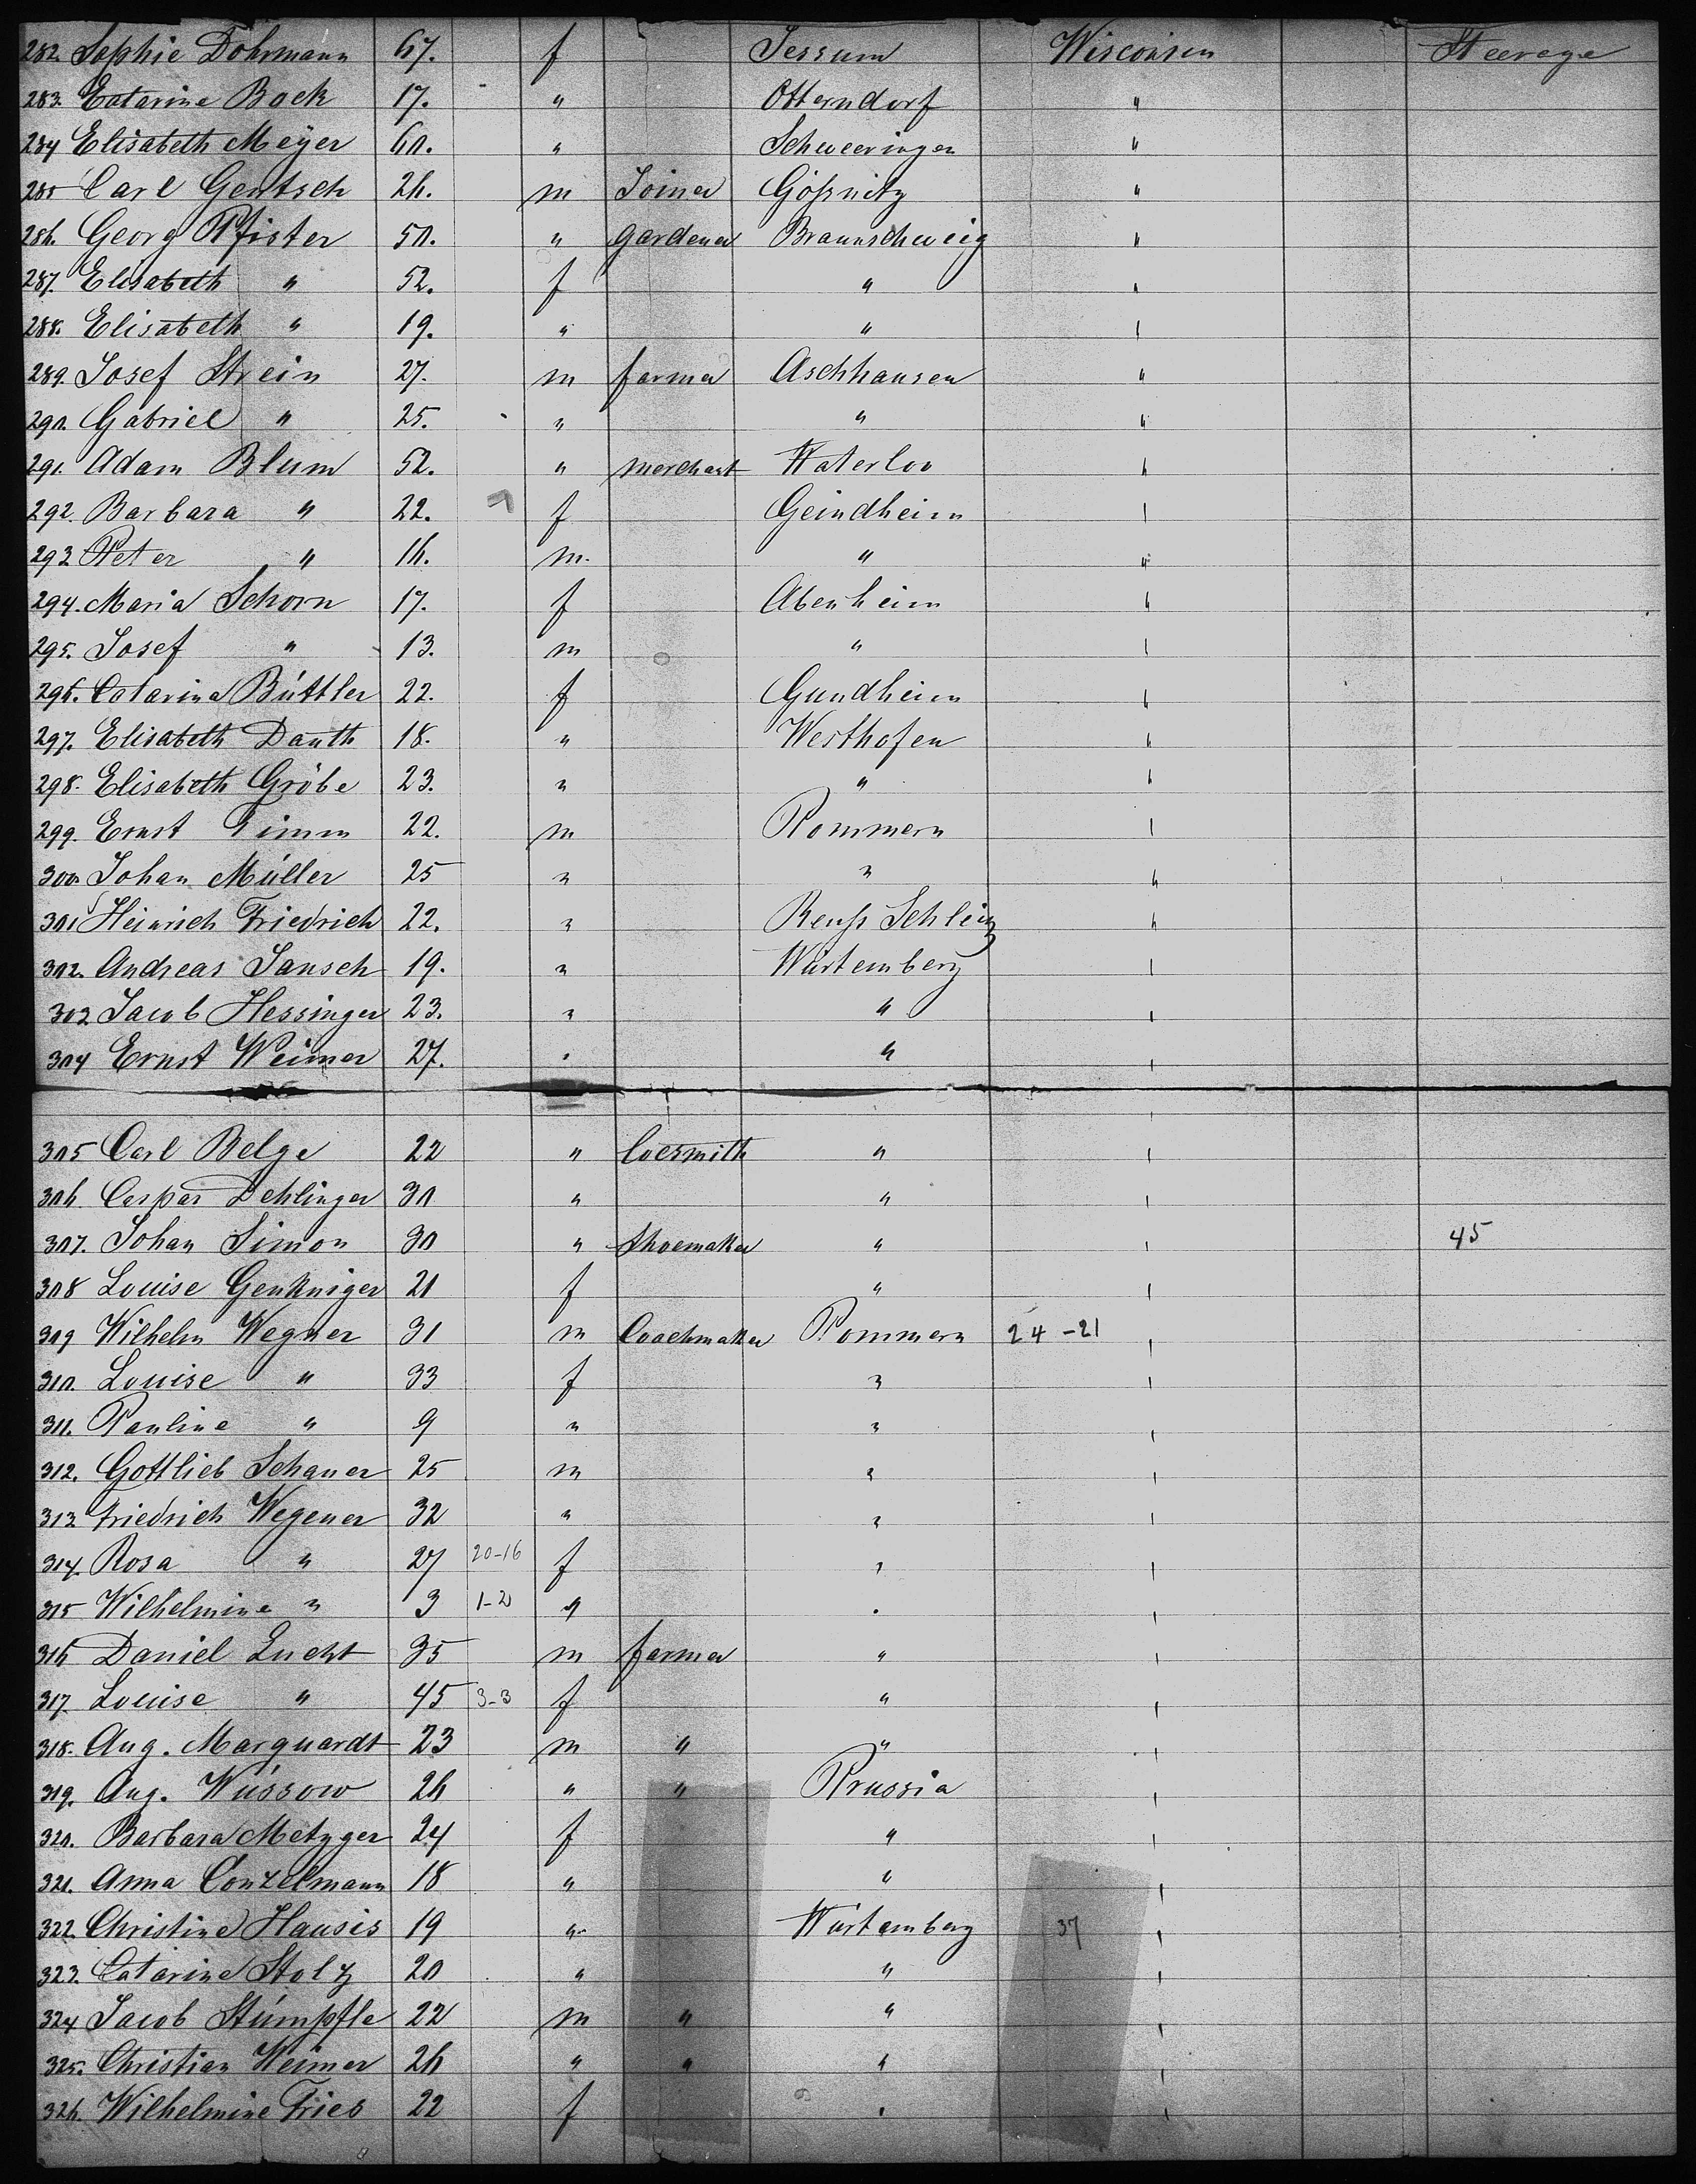 282. Sophie Dohrmann 67. f Jessum Wisconsin Steerage
283. Catarine Bock 17. " Otterndorf "
284 Elisabeth Meyer 60. " Schweeringen "
285 Carl Gentsch 26. m Joiner Gößnitz "
286. Georg Pfister 50. " gardener Braunschweig "
287. Elisabeth " 52. f " "
288. Elisabeth " 19. " " "
289. Josef Strein 27. m farmer Aschhausen "
290. Gabriel " 25. " " "
291. Adam Blum 52. " merchant Waterloo "
292. Barbara " 22. f Geindheim "
293 Peter " 16. m. " "
294. Maria Schorn 17. f Abenheim "
295. Josef " 13. m " "
296. Catarina Büttler 22. f Gundheim "
297. Elisabeth Dauth 18. " Westhofen "
298. Elisabeth Gröbe 23. " " "
299. Ernst Timm 22. m Pommern "
300. Johan Müller 25 " " "
301 Heinrich Friedrich 22. " Reuß Schleiz "
302. Andreas Jansch 19. " Würtemberg "
303 Jacob Hessinger 23. " " "
304 Ernst Weimer 27. " " "
305 Carl Belge 22 " locsmith " "
306. Caspar Dehlinger 30 " " "
307. Johan Simon 30 " shoemaker " " 45
308 Louise Genkniger 21 f " "
309 Wilhelm Wegner 31 m Coachmaker Pommern 24-21 "
310. Louise " 33 f " "
311. Pauline " 9 " " "
312. Gottlieb Schauer 25 m " "
313 Friedrich Wegener 32 " " "
314. Rosa " 27 20-16 f " "
315 Wilhelmine " 3 1-2 " " "
316 Daniel Lucht 35 m farmer " "
317. Louise " 45 3-3 f " "
318. Aug. Marquardt 23 m " " "
319. Aug. Wüssow 26 " " Prussia "
320. Barbara Metzger 24 f " "
321. Anna Conzelmann 18 " " "
322. Christine Hausis 19 " Würtemberg 37 "
323. Catarine Stolz 20 " " "
324 Jacob Stümpfle 22 m " " "
325. Christian Weimer 26 " " " "
326. Wilhelmine Fries 22 f " "